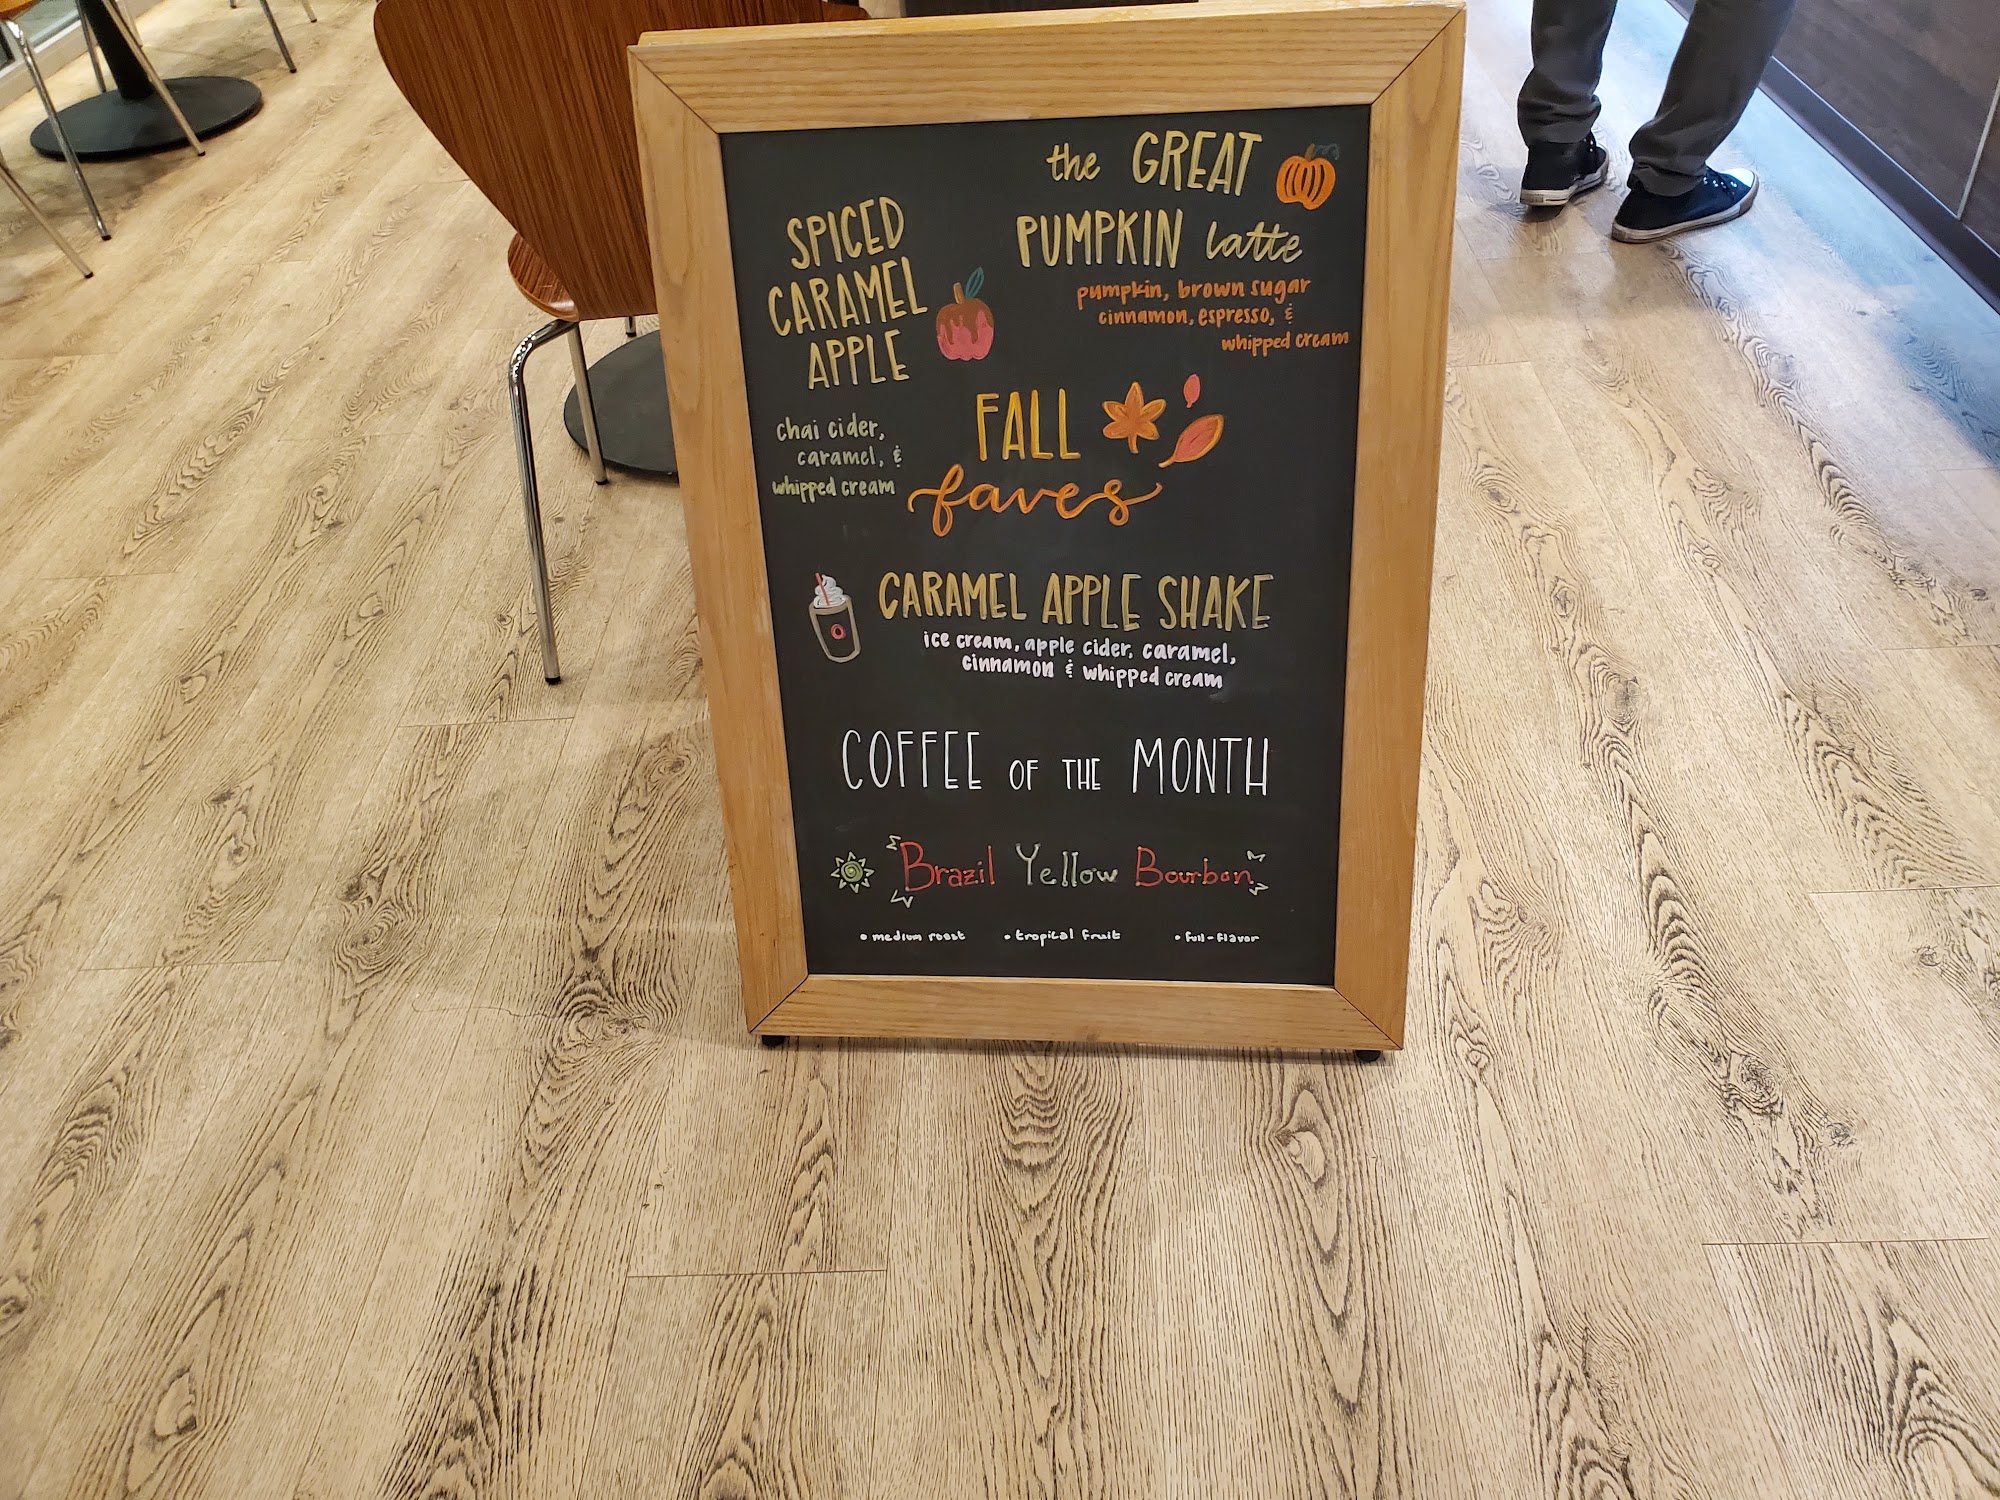 the GREAT
PUMPKIN latte
pumpkin, brown sugar
cinnamon, espresso, &
whipped cream
SPICED
CARAMEL
APPLE
chai cider,
caramel, &
whipped cream
FALL
faves
CARAMEL APPLE SHAKE
ice cream, apple cider, caramel,
cinnamon & whipped cream
COFFEE OF THE MONTH
Brazil Yellow Bourbon
• medium roast • tropical fruit • full-flavor